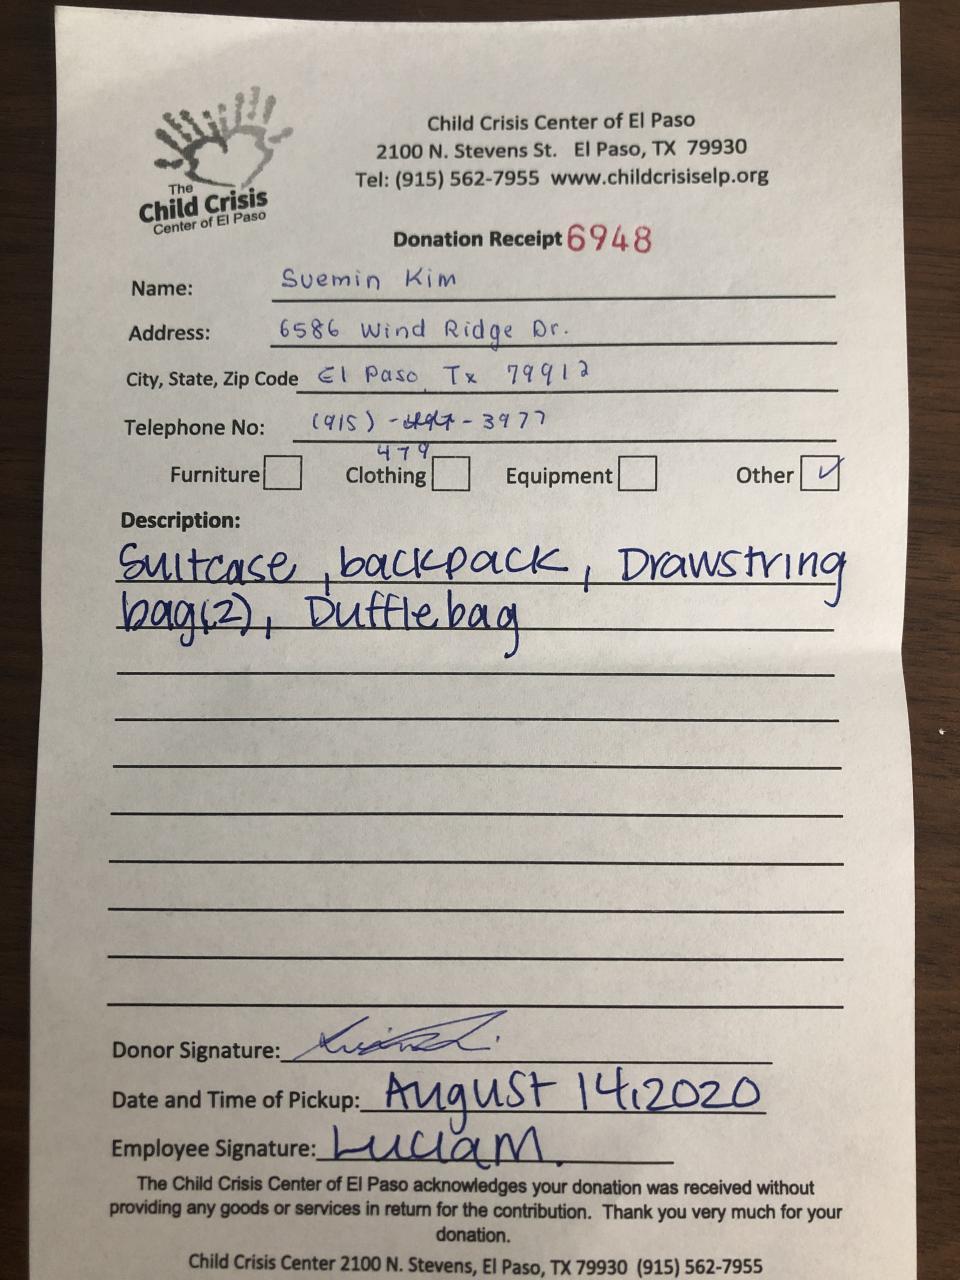 The
Child Crisis
Center of El Paso
Child Crisis Center of El Paso
2100 N. Stevens St. El Paso, TX 79930
Tel: (915) 562-7955 www.childcrisiselp.org
Donation Receipt 6948
Name: Suemin Kim
Address: 6586 Wind Ridge Dr.
City, State, Zip Code El Paso, Tx 79912
Telephone No: (915) - - 3977
479
Furniture Clothing Equipment Other ✓
Description:
Suitcase, backpack, Drawstring
bag(2), Duffle bag
Donor Signature:
Date and Time of Pickup: August 14, 2020
Employee Signature: Lucia M.
The Child Crisis Center of El Paso acknowledges your donation was received without
providing any goods or services in return for the contribution. Thank you very much for your
donation.
Child Crisis Center 2100 N. Stevens, El Paso, TX 79930 (915) 562-7955